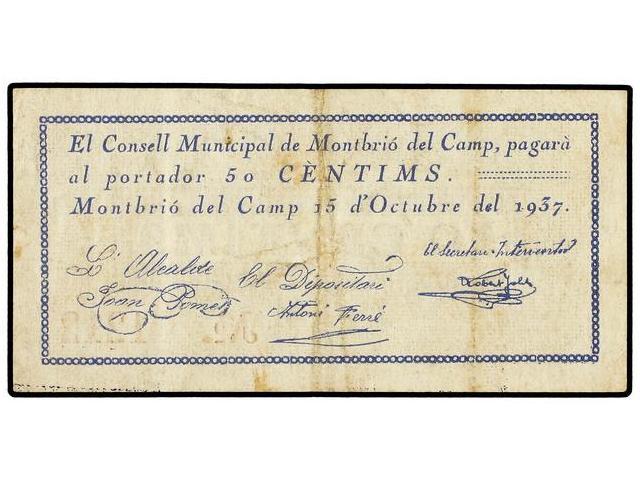 El Consell Municipal de Montbrió del Camp, pagarà
al portador 50 CÈNTIMS.
Montbrió del Camp 15 d'Octubre del 1937.
L'Alcalde
Joan
El Depositari
Antoni Ferré
El Secretari-Interventor